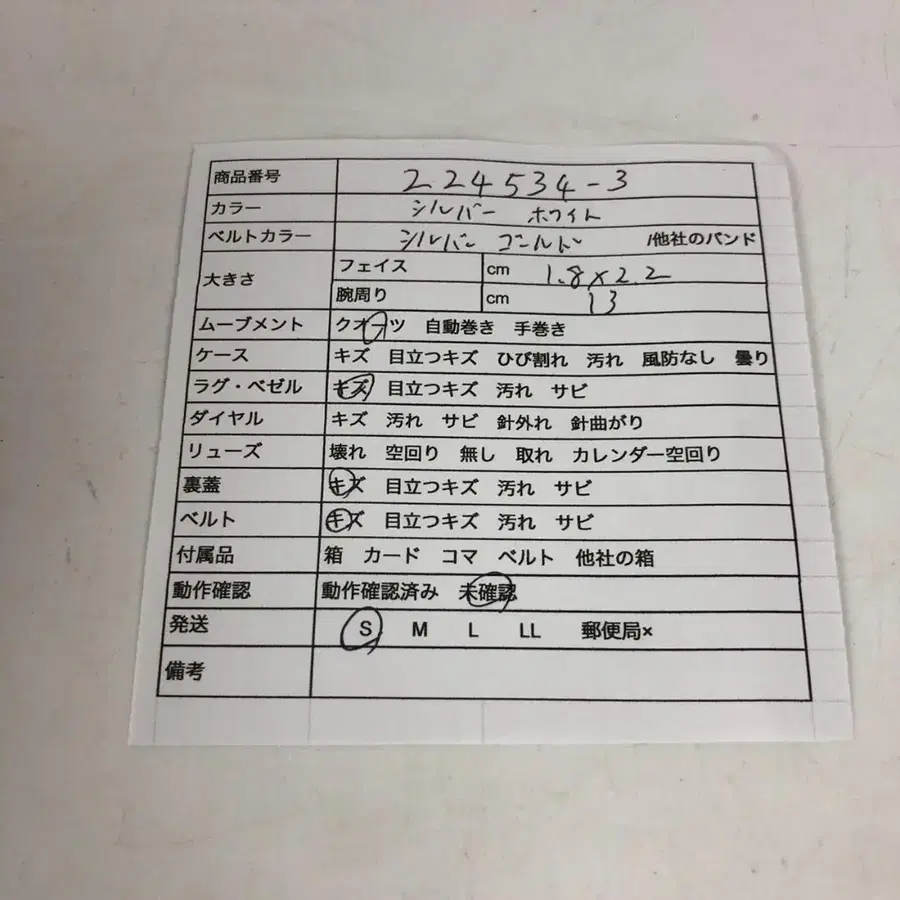 商品番号 224534-3
カラー シルバー ホワイト
ベルトカラー シルバー ゴールド /他社のバンド
大きさ フェイス cm 1.8×2.2
腕周り cm 13
ムーブメント クオーツ 自動巻き 手巻き
ケース キズ 目立つキズ ひび割れ 汚れ 風防なし 曇り
ラグ・ベゼル キズ 目立つキズ 汚れ サビ
ダイヤル キズ 汚れ サビ 針外れ 針曲がり
リューズ 壊れ 空回り 無し 取れ カレンダー空回り
裏蓋 キズ 目立つキズ 汚れ サビ
ベルト キズ 目立つキズ 汚れ サビ
付属品 箱 カード コマ ベルト 他社の箱
動作確認 動作確認済み 未確認
発送 S M L LL 郵便局×
備考